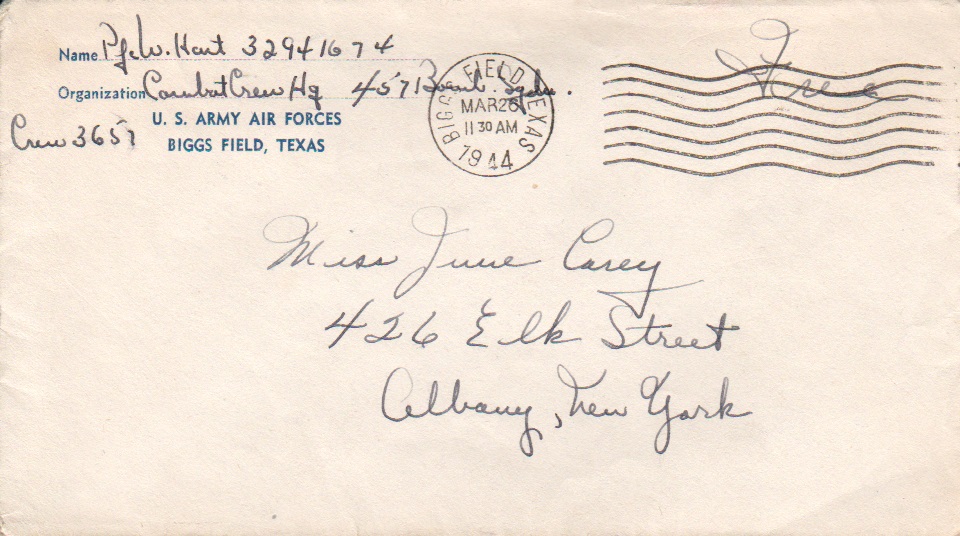 Name Pfc W. Hart 32941674
Organization Combat Crew Hq 457 Bomb. Sqdn.
U. S. ARMY AIR FORCES
Crew 3657
BIGGS FIELD, TEXAS
BIGGS FIELD, TEXAS
MAR 26
11 30 AM
1944
Free
Miss June Carey
426 Elk Street
Albany, New York